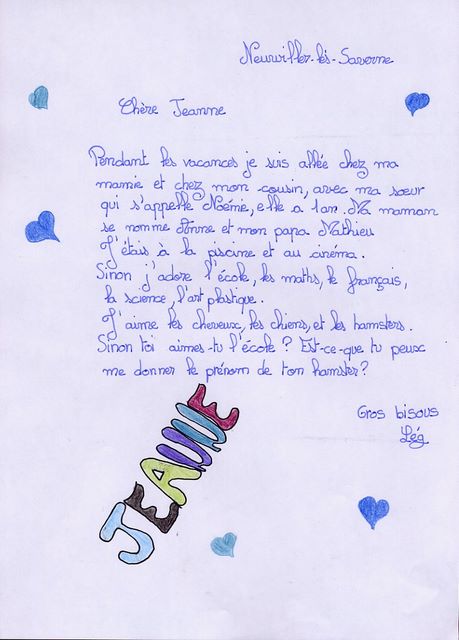 Neuwiller-lès-Saverne
Chère Jeanne
Pendant les vacances je suis allée chez ma
mamie et chez mon cousin, avec ma sœur
qui s'appelle Noémie, elle a 1an. Ma maman
se nomme Anne et mon papa Mathieu
J'étais à la piscine et au cinéma.
Sinon j'adore l'école, les maths, le français,
la science, l'art plastique.
J'aime les cheveux, les chiens, et les hamsters.
Sinon toi aimes-tu l'école ? Est-ce-que tu peux
me donner le prénom de ton hamster ?
Gros bisous
JEANNE